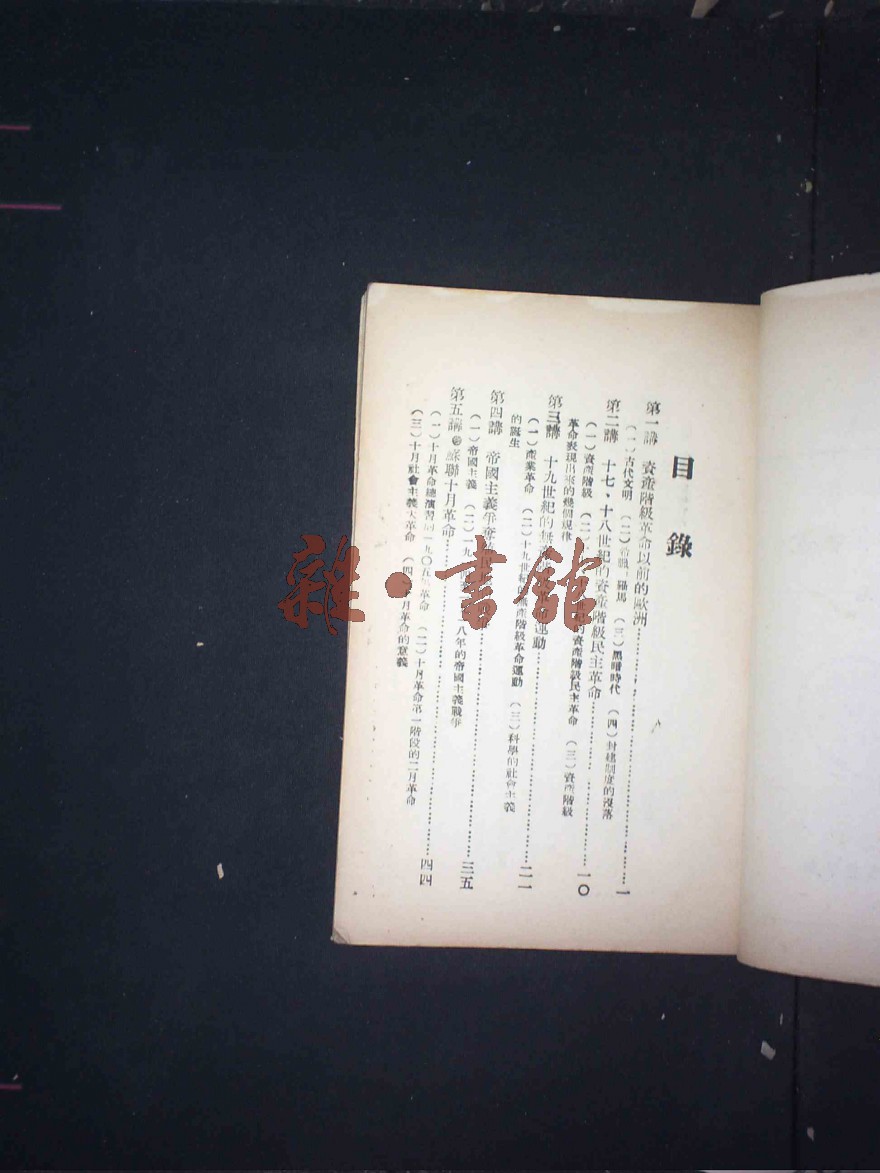 目錄
第一講 資產階級革命以前的歐洲……一
(一)古代文明 (二)希臘、羅馬 (三)黑暗時代 (四)封建制度的沒落
第二講 十七、十八世紀的資產階級民主革命……一〇
(一)資產階級 (二) 的資產階級民主革命 (三)資產階級
革命表現出來的幾個規律
第三講 十九世紀的無 運動……二一
(一)產業革命 (二)十九世紀 無產階級革命運動 (三)科學的社會主義
的誕生
第四講 帝國主義爭奪……三五
(一)帝國主義 (二)一九 一八年的帝國主義戰爭
第五講 蘇聯十月革命……四四
(一)十月革命總演習 一九〇五年革命 (二)十月革命第一階段的二月革命
(三)十月社會主義大革命 (四)十月革命的意義
雜·書館